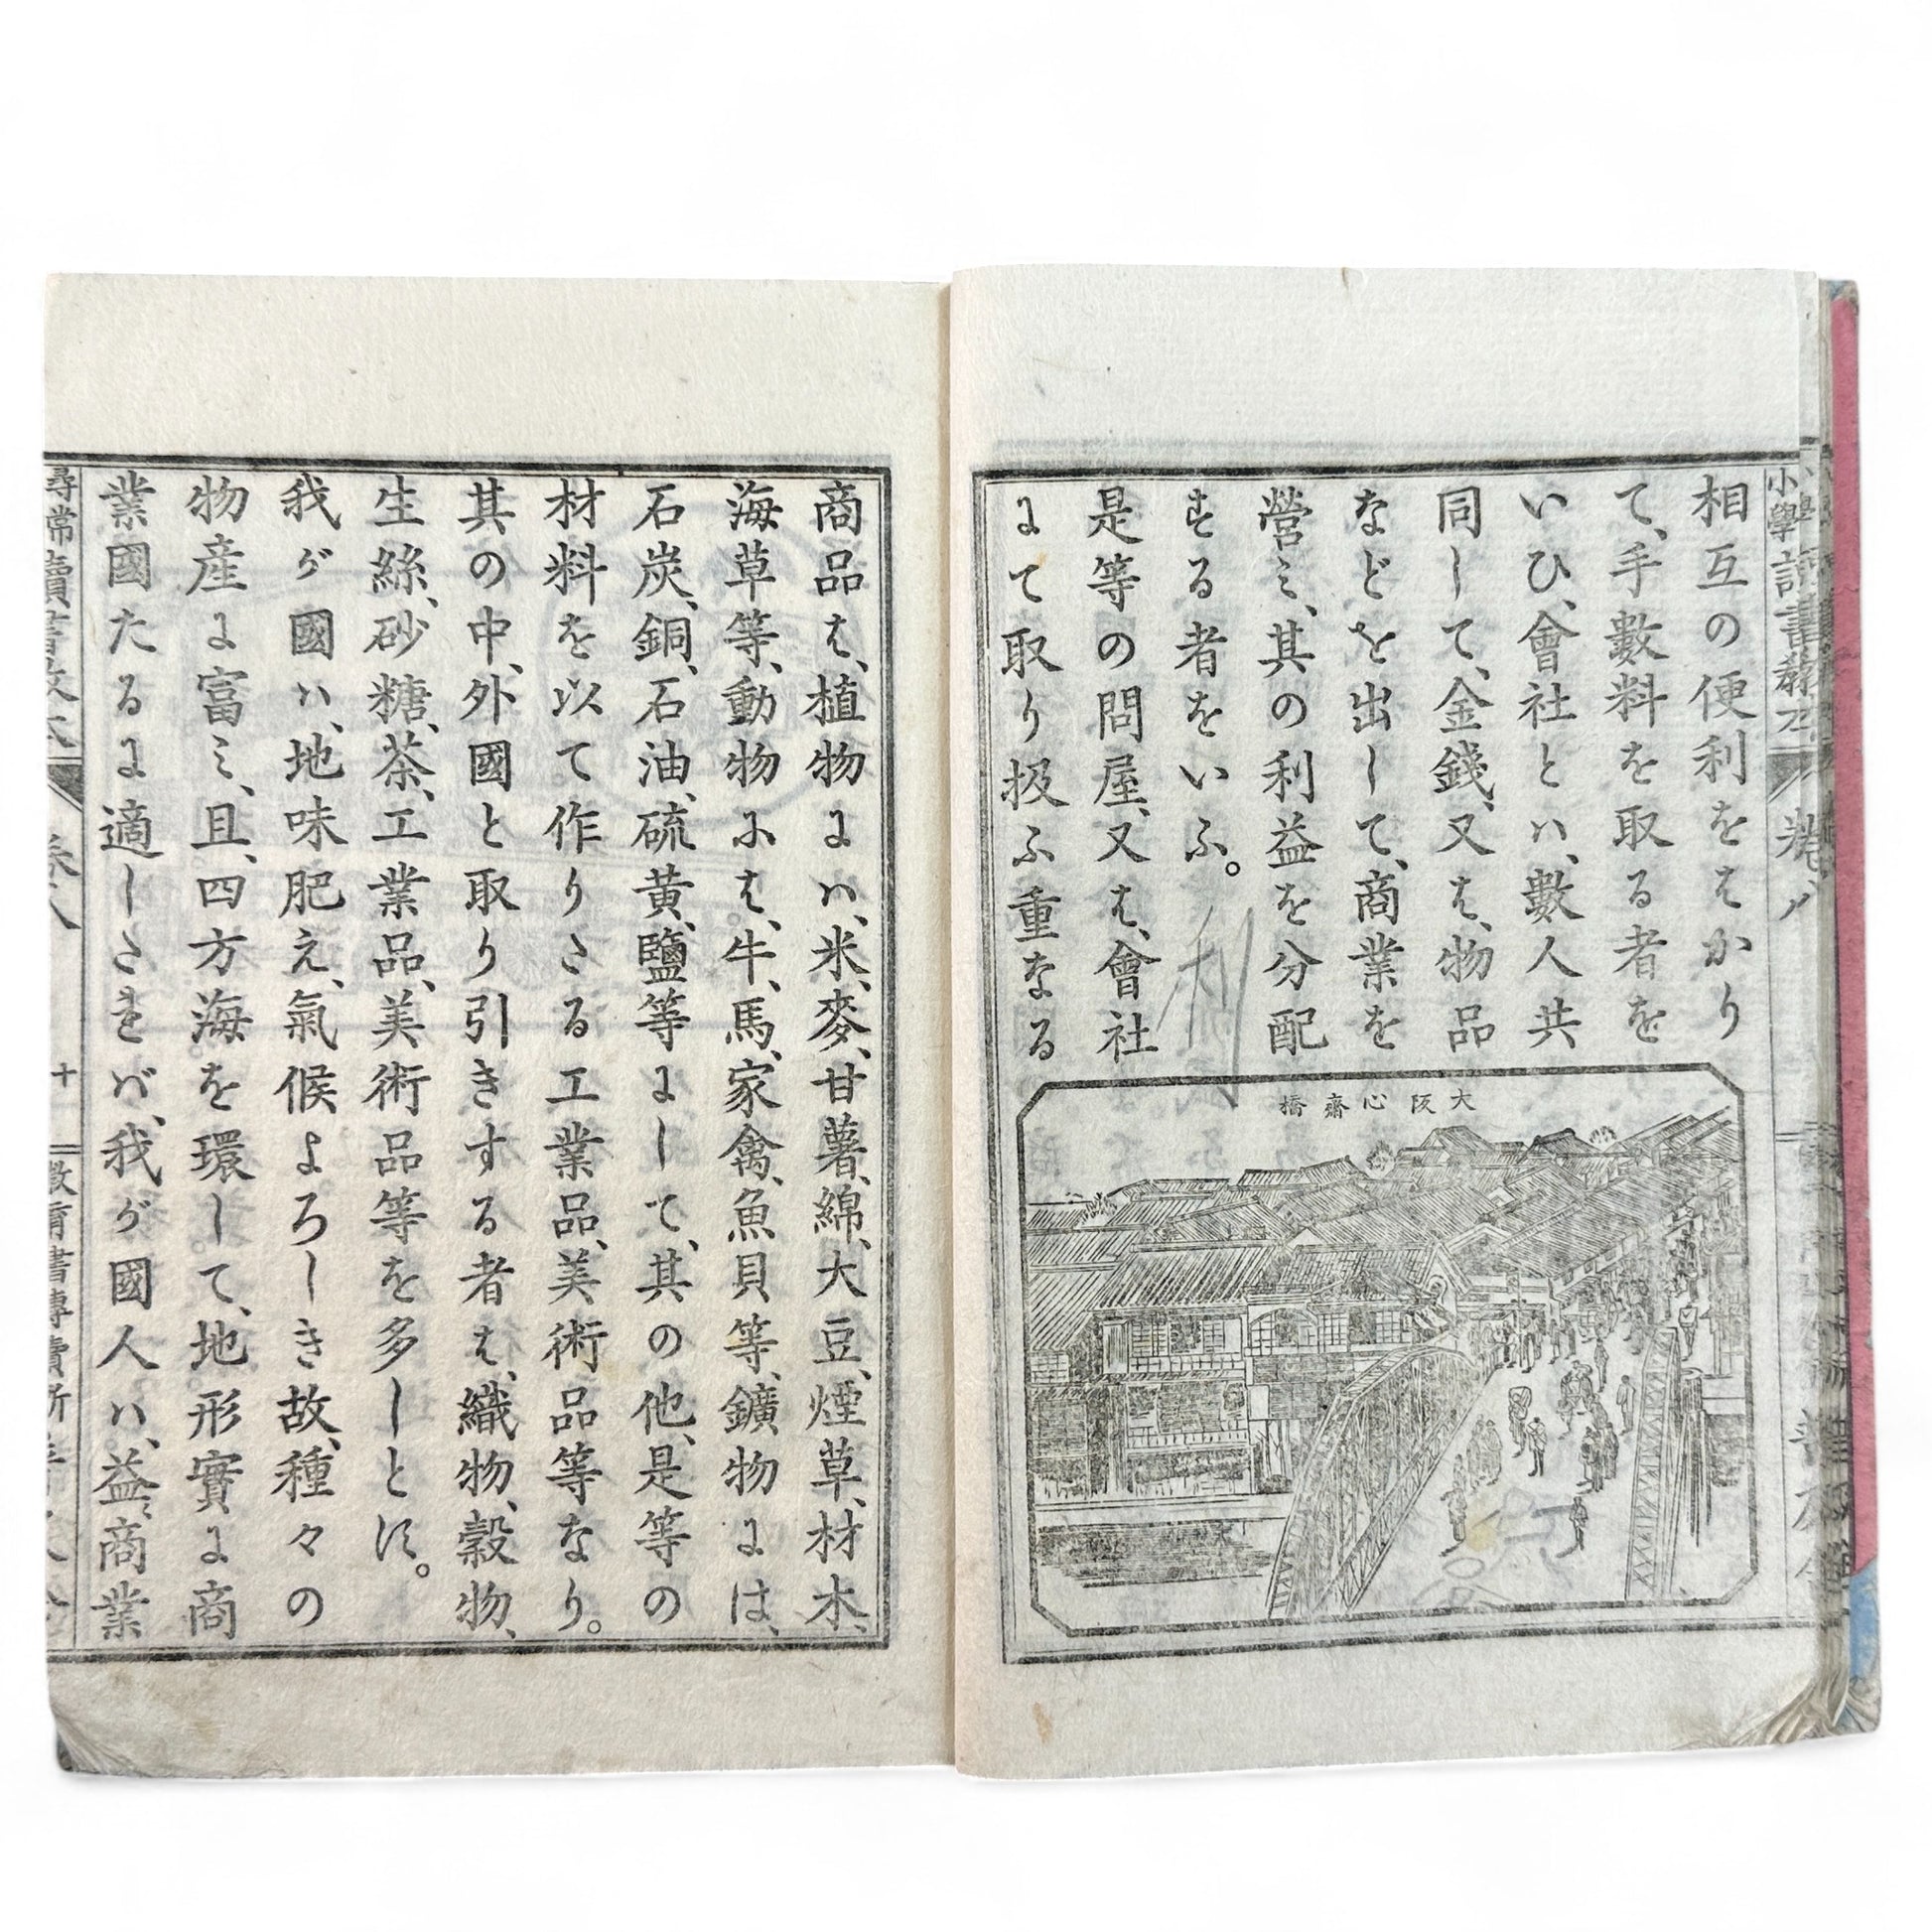 相互の便利をはかり
て、手數料を取る者を
いひ、會社とハ、數人共
同して、金錢、又は、物品
などを出して、商業を
營ミ、其の利益を分配
する者をいふ。
是等の問屋、又は、會社
にて取り扱ふ重なる
大阪心齋橋
商品は、植物にハ、米、麥、甘薯、綿、大豆、煙草、材木、
海草等、動物には、牛、馬、家禽、魚貝等、鑛物には、
石炭、銅、石油、硫黄、鹽等にして、其の他、是等の
材料を以て作りたる工業品、美術品等なり。
其の中、外國と取り引きする者は、織物、穀物、
生絲、砂糖、茶、工業品、美術品等を多しとす。
我が國ハ、地味肥え、氣候よろしき故、種々の
物産に富ミ、且、四方海を環して、地形實に商
業國たるに適したれバ、我が國人ハ、益〻商業
尋常讀書教本
巻八
十